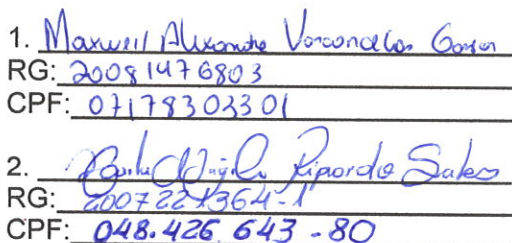 1. Maxwell Alexandre Vasconcelos
RG: 20081476803
CPF: 07178303301
2. Ripardo Sales
RG: 2007221364-1
CPF: 048.426.643-80